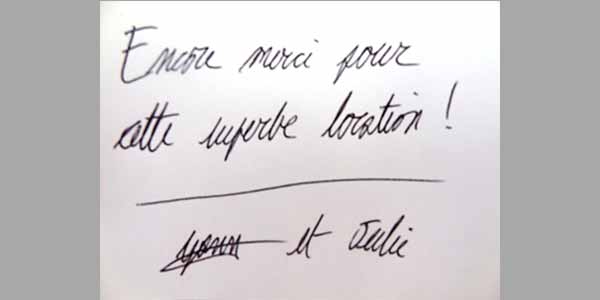 Encore merci pour
cette superbe location !
et Julie